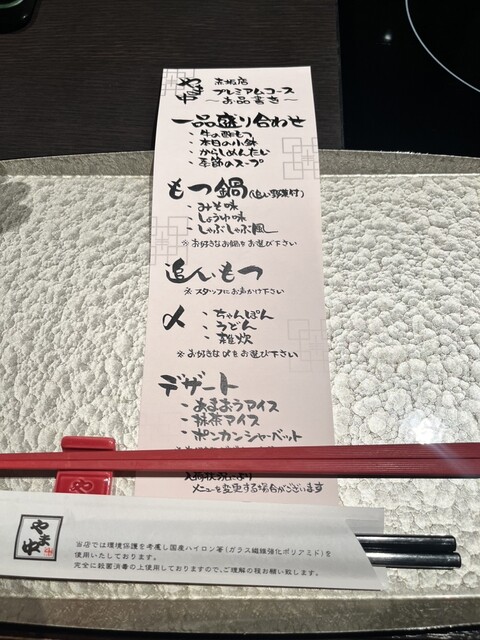 やま中
赤坂店
プレミアムコース
～お品書き～
一品盛り合わせ
・牛の酢もつ
・本日の小鉢
・からしめんたい
・季節のスープ
もつ鍋(追い野菜付)
・みそ味
・しょうゆ味
・しゃぶしゃぶ風
※お好きなお鍋をお選び下さい
追いもつ
※スタッフにお声かけ下さい
〆
・ちゃんぽん
・うどん
・雑炊
※お好きな〆をお選び下さい
デザート
・あまおうアイス
・抹茶アイス
・ポンカンシャーベット
入荷状況により
メニューを変更する場合がございます
やま中
当店では環境保護を考慮し国産ハイロン箸(ガラス繊維強化ポリアミド)を
使用いたしております。
完全に殺菌消毒の上使用しておりますので、ご理解の程お願い致します。